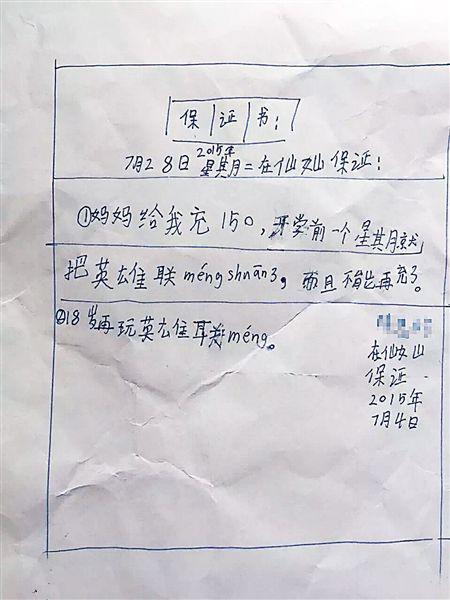 保证书:
2015年
7月28日星期二在仙女山保证:
①妈妈给我充150,开学前一个星期就
把英雄联méng shuān了,而且不能再充了。
②18岁再玩英雄联méng。
在仙女山
保证.
2015年
7月4日